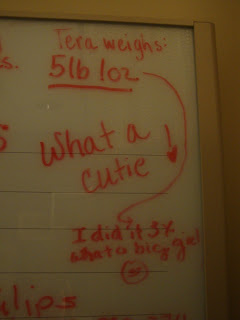 s.
Tera weighs:
5lb 1oz
What a
cutie !
I did it 3x
what a big girl
lips